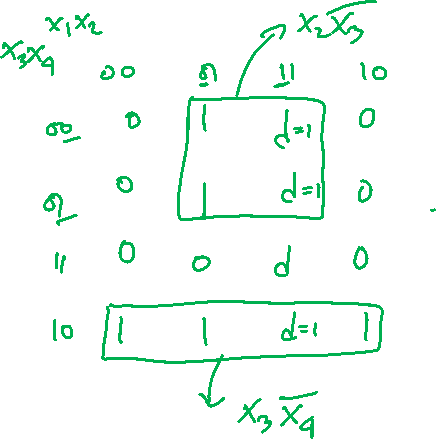 x₁x₂ X₂X̅₃
X₃X₄ 00 01 11 10
00 0 1 d=1 0
01 0 1 d=1 0
11 0 0 d 0
10 1 1 d=1 1
X₃X̅₄